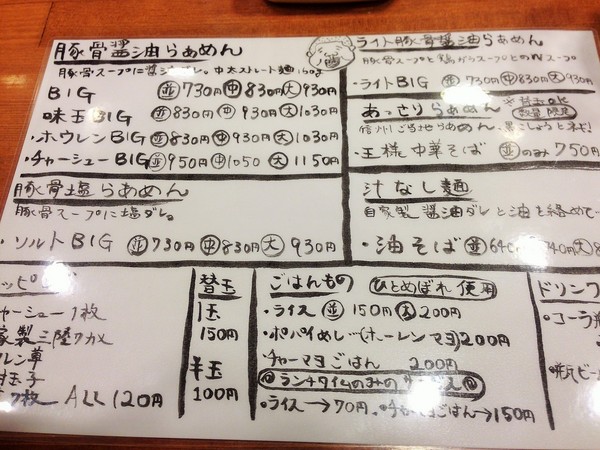 豚骨醤油らぁめん
豚骨スープに醤油ダレ。中太ストレート麺150g
BIG 並730円 中830円 大930円
味玉BIG 並830円 中930円 大1030円
・ホウレンBIG 並830円 中930円 大1030円
・チャーシューBIG 並950円 中1050 大1150円
豚骨塩らぁめん
豚骨スープに塩ダレ。
・ソルトBIG 並730円 中830円 大930円
ライト豚骨醤油らぁめん
豚骨スープと鶏ガラスープとのWスープ
・ライトBIG 並730円 中830円 大930円
あっさりらぁめん ※替玉OK 数量限定
信州ご当地らぁめん、黒こしょう
・王様中華そば 並のみ750円
汁なし麺
自家製醤油ダレと油を絡めて
・油そば 並640 740円 大8
ッピ
ャーシュー1枚
家製三陸ワカメ
レン草
玉子
7枚 ALL 120円
替玉
1玉
150円
半玉
100円
ごはんもの ひとめぼれ使用
・ライス 並150円 大200円
・ポパイめし…(ホーレンマヨ)200円
チャーマヨごはん 200円
ランチタイムのみのサービス
・ライス→70円 ごはん→150円
ドリンク
・コーラ
・瓶ビー